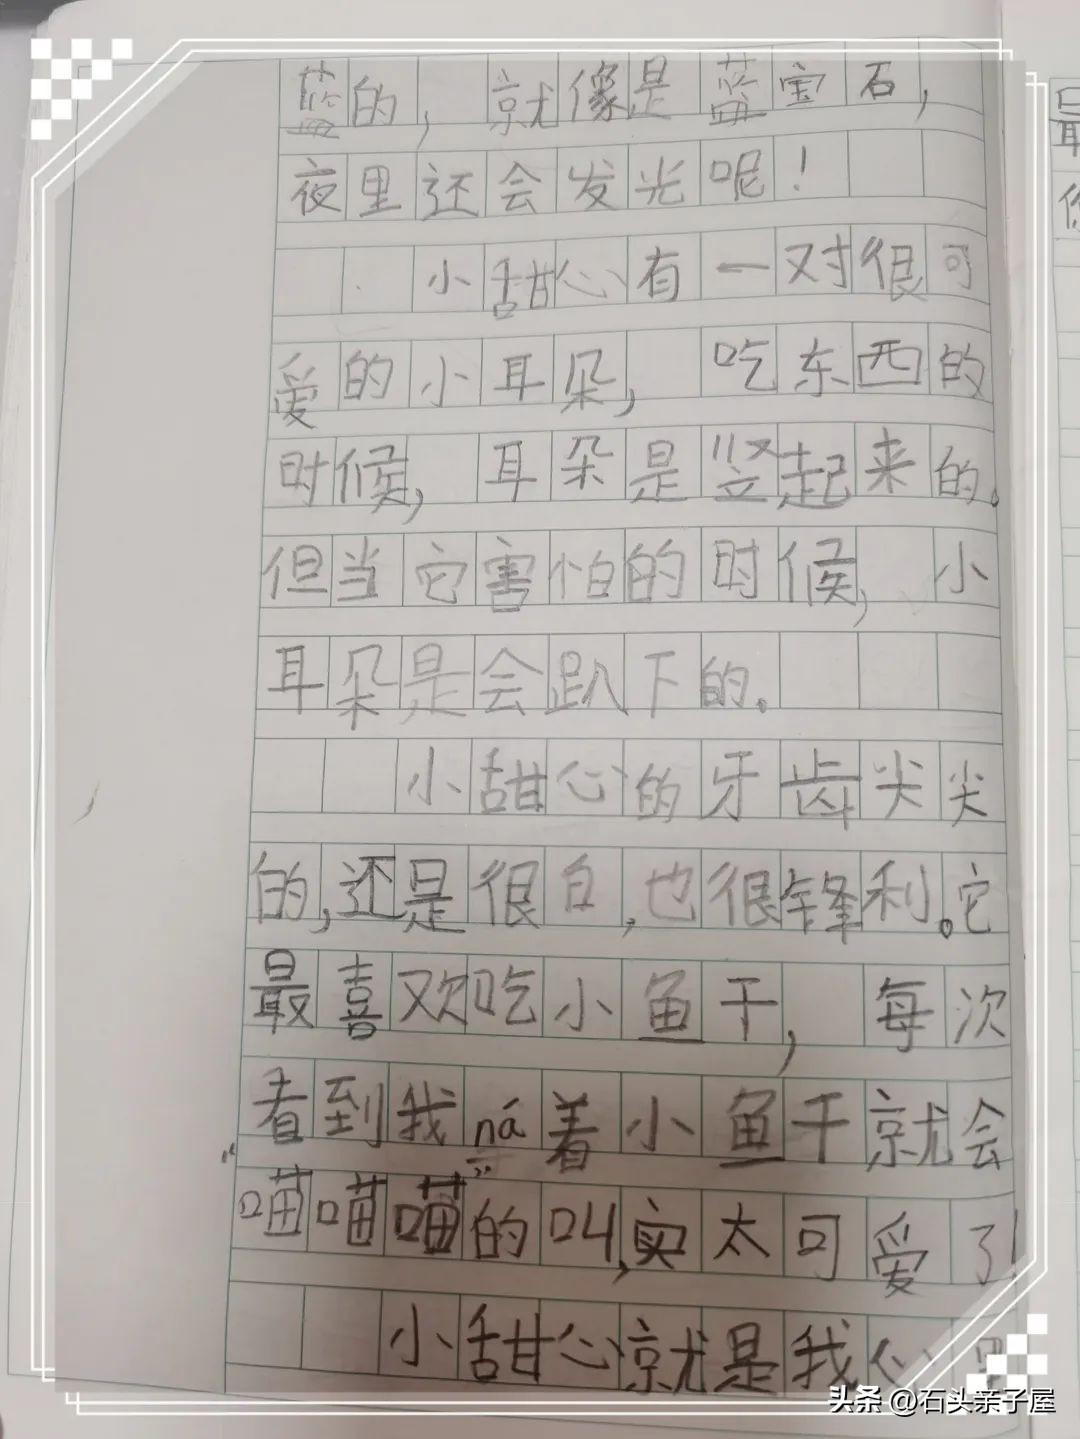 蓝的，就像是蓝宝石，
夜里还会发光呢！
小甜心有一对很可
爱的小耳朵，吃东西的
时候，耳朵是竖起来的。
但当它害怕的时候，小
耳朵是会趴下的。
小甜心的牙齿尖尖
的，还是很白，也很锋利。它
最喜欢吃小鱼干，每次
看到我ná着小鱼干就会
“喵喵喵”的叫，实太可爱了！
小甜心就是我心里
最
头条 @石头亲子屋